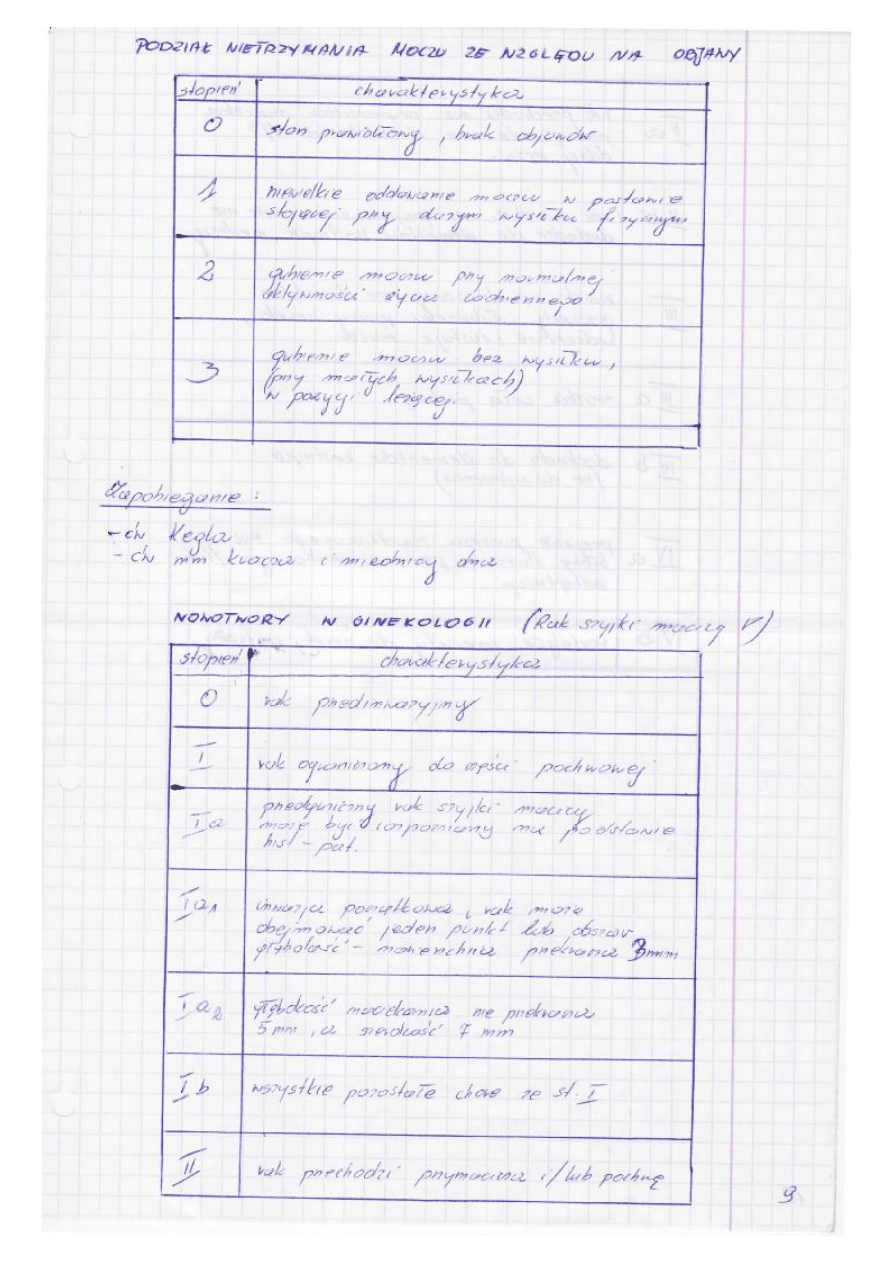 PODZIAŁ NIETRZYMANIA MOCZU ZE WZGLĘDU NA OBJAWY
stopień charakterystyka
0 stan prawidłowy, brak objawów
1 niewielkie oddawanie moczu w postawie
stojącej przy dużym wysiłku fizycznym
2 gubienie moczu przy normalnej
aktywności życia codziennego
3 gubienie moczu bez wysiłku,
(przy małych wysiłkach)
w pozycji leżącej
Zapobieganie:
- ćw Kegla
- ćw mm krocza i miednicy dna
NOWOTWORY W GINEKOLOGII (Rak szyjki macicy
stopień charakterystyka
0 rak przedinwazyjny
I rak ograniczony do części pochwowej
Ia przedkliniczny rak szyjki macicy
może być rozpoznany na podstawie
hist-pat.
Ia1 inwazja początkowa, rak może
obejmować jeden punkt lub obszar
głębokość - przekracza 3mm
Ia2 głębokość naciekania nie przekracza
5mm, a szerokość 7 mm
Ib wszystkie pozostałe chore ze st. I
II rak przechodzi przymacicza i/lub pochwę
9